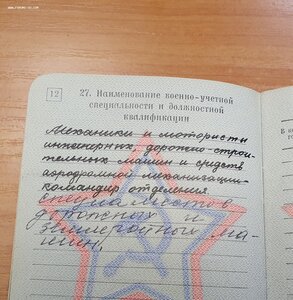 12
27. Наименование военно-учетной
специальности и должностной
квалификации
Механики и мотористы
инженерных дорожно-строи-
тельных машин и средств
аэродромной механизации
командир отделения
специалистов
дорожных и
землеройных ма-
шин.